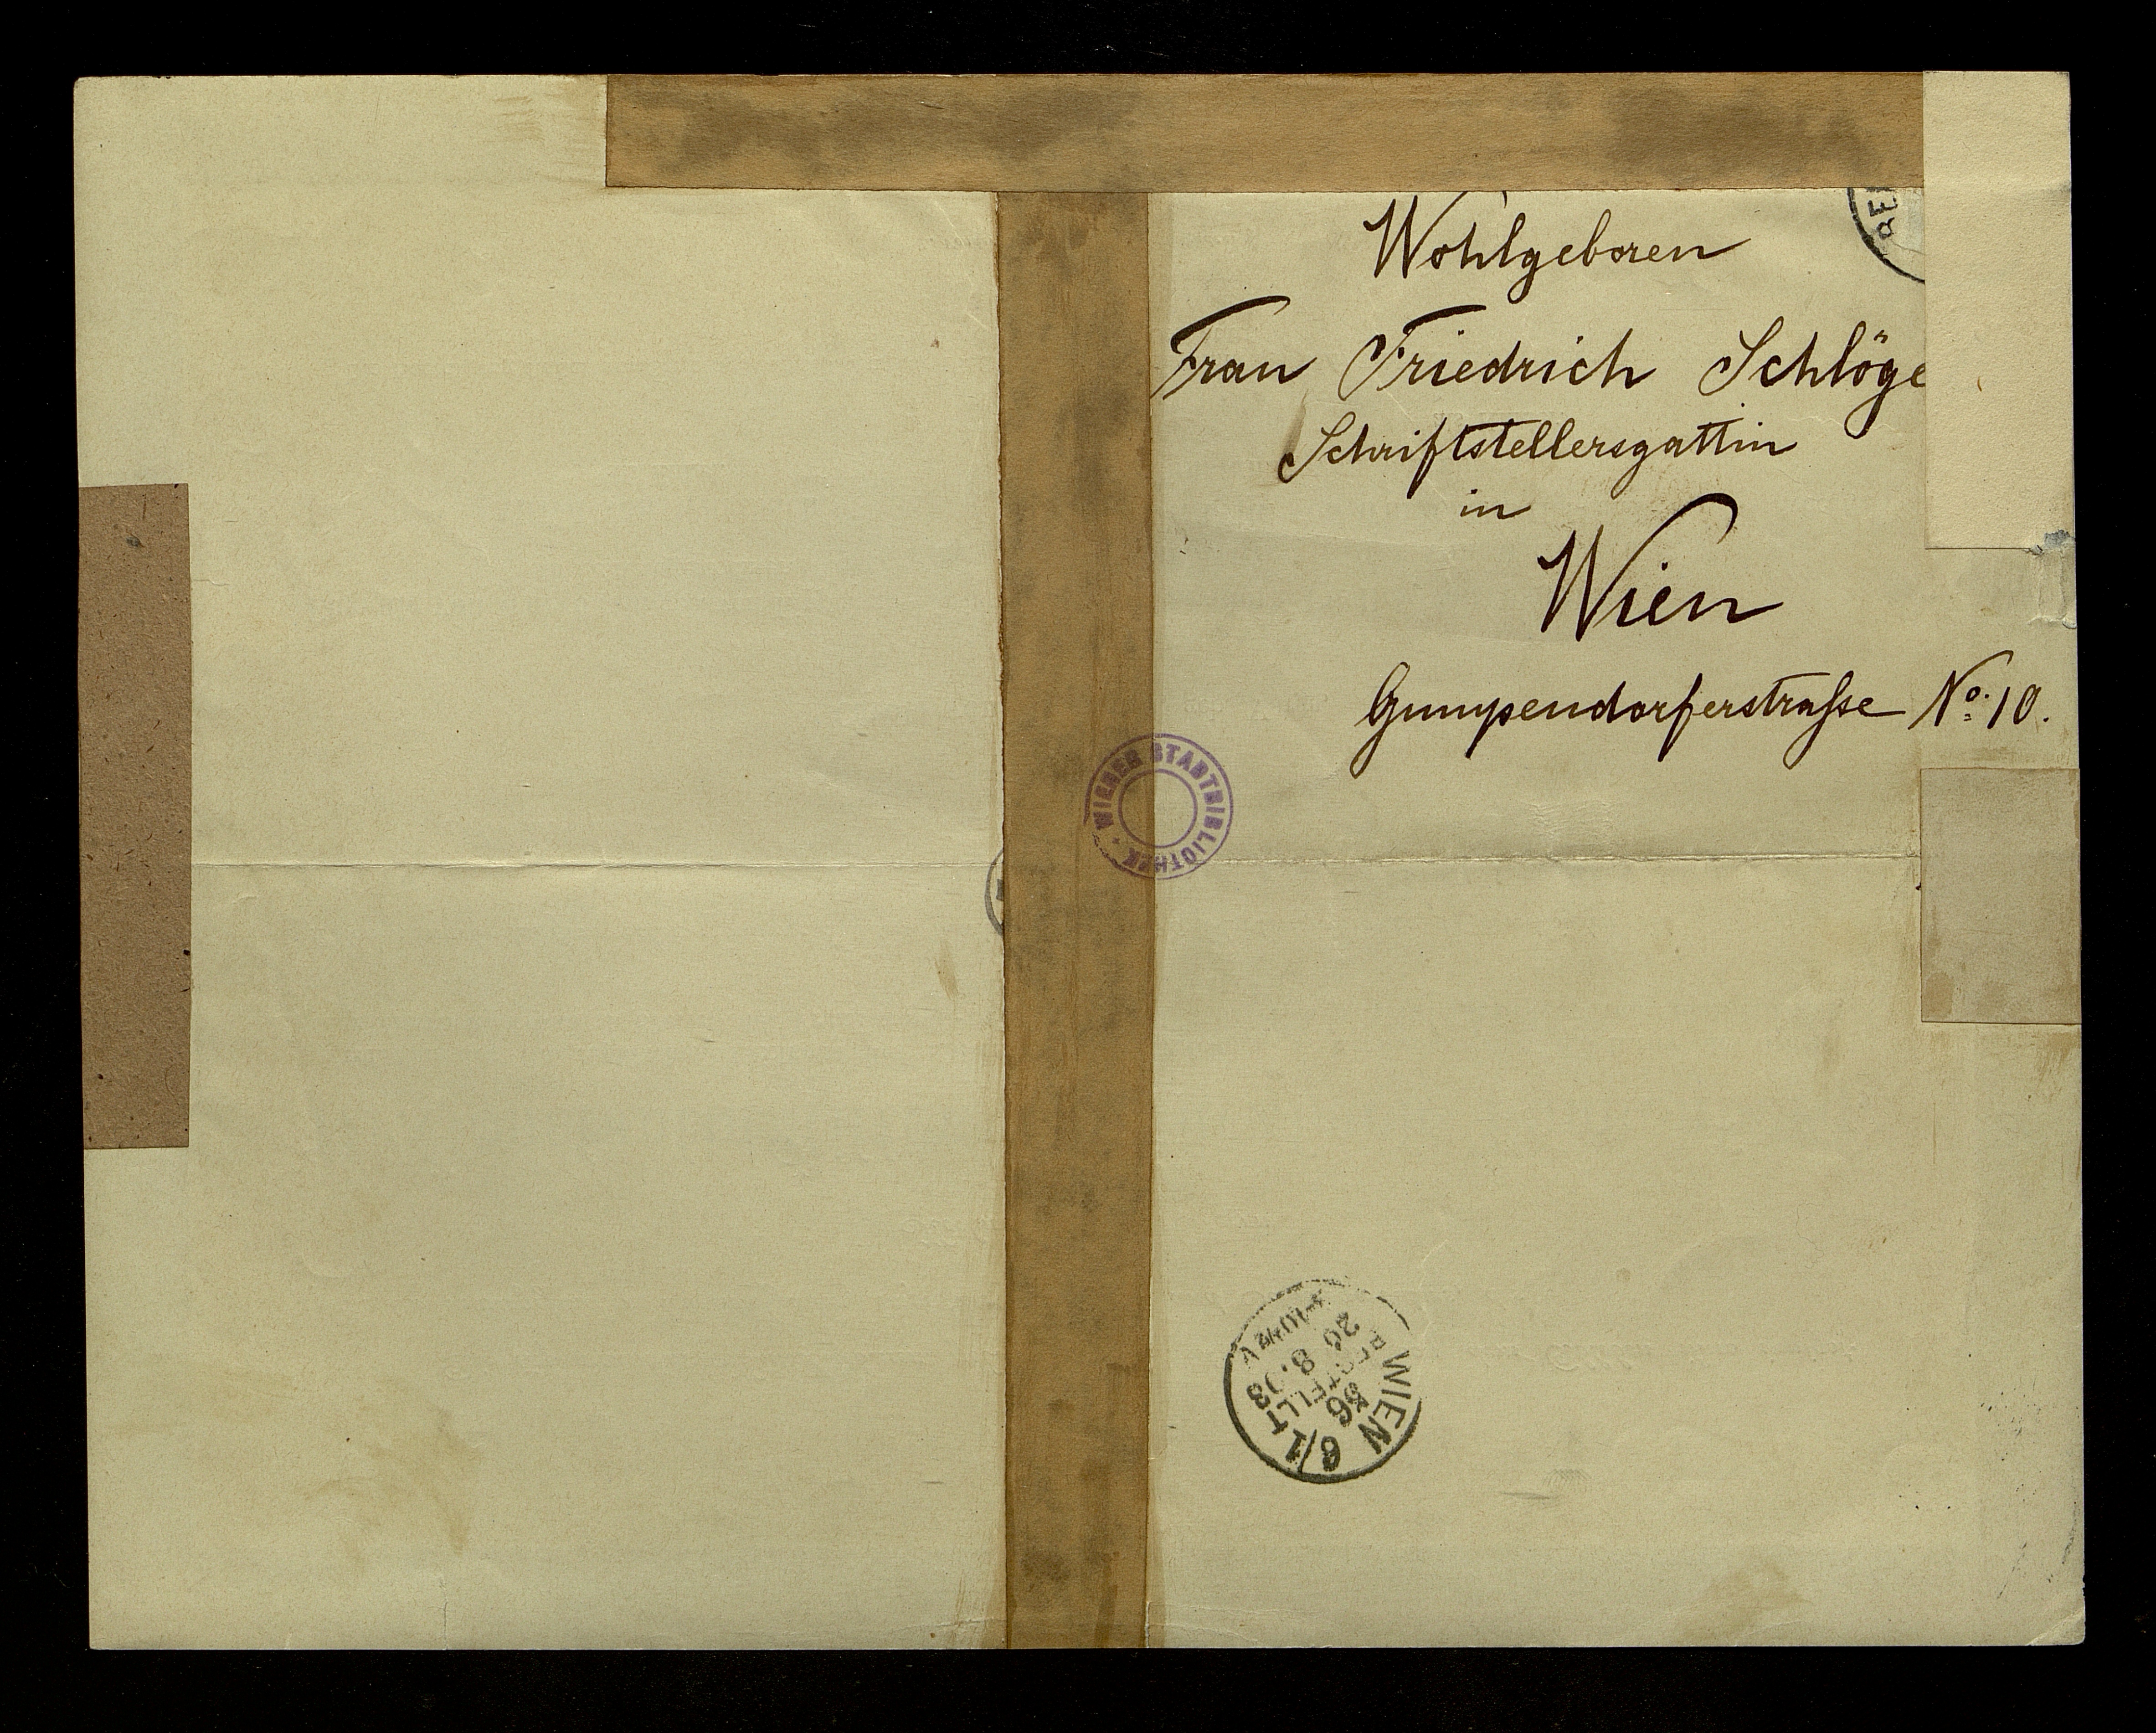 Wohlgeboren
Frau Friedrich Schlöge
Schriftstellersgattin
in
Wien
Gumpendorferstraſse No. 10.
WIENER STADTBIBLIOTHEK
WIEN 6/1
56
BESTELLT
26 8.03